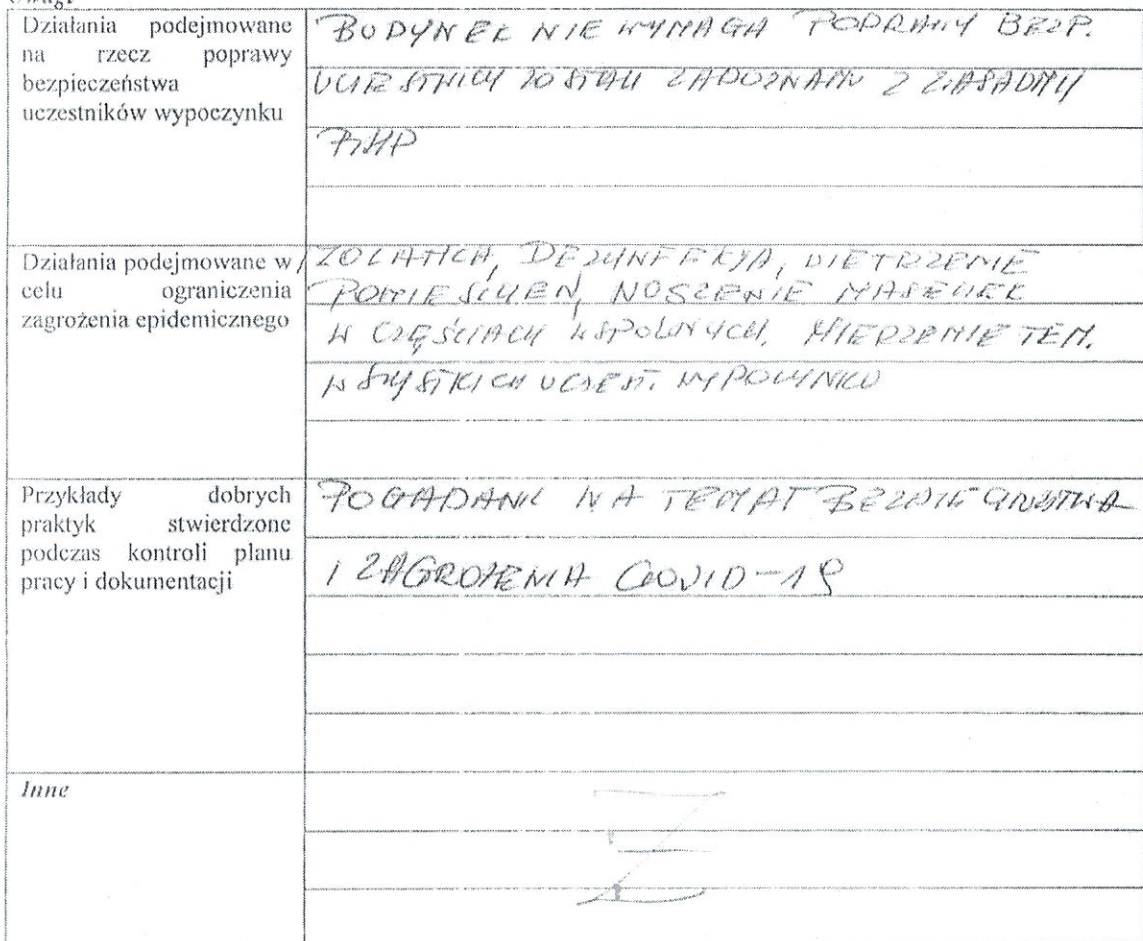 Uwagi
Działania podejmowane
na rzecz poprawy
bezpieczeństwa
uczestników wypoczynku
BUDYNEK NIE WYMAGA POPRAWY BEZP.
UCZESTNICY ZOSTALI ZAPOZNANI Z ZASADAMI
BHP
Działania podejmowane w
celu ograniczenia
zagrożenia epidemicznego
IZOLATKA, DEZYNFEKCJA, WIETRZENIE
POMIESZCZEŃ, NOSZENIE MASECZEK
W CZĘŚCIACH WSPÓLNYCH, MIERZENIE TEM.
WSZYSTKICH UCZEST. WYPOCZYNKU
Przykłady dobrych
praktyk stwierdzone
podczas kontroli planu
pracy i dokumentacji
POGADANKI NA TEMAT BEZPIECZEŃSTWA
I ZAGROŻENIA COVID-19
Inne